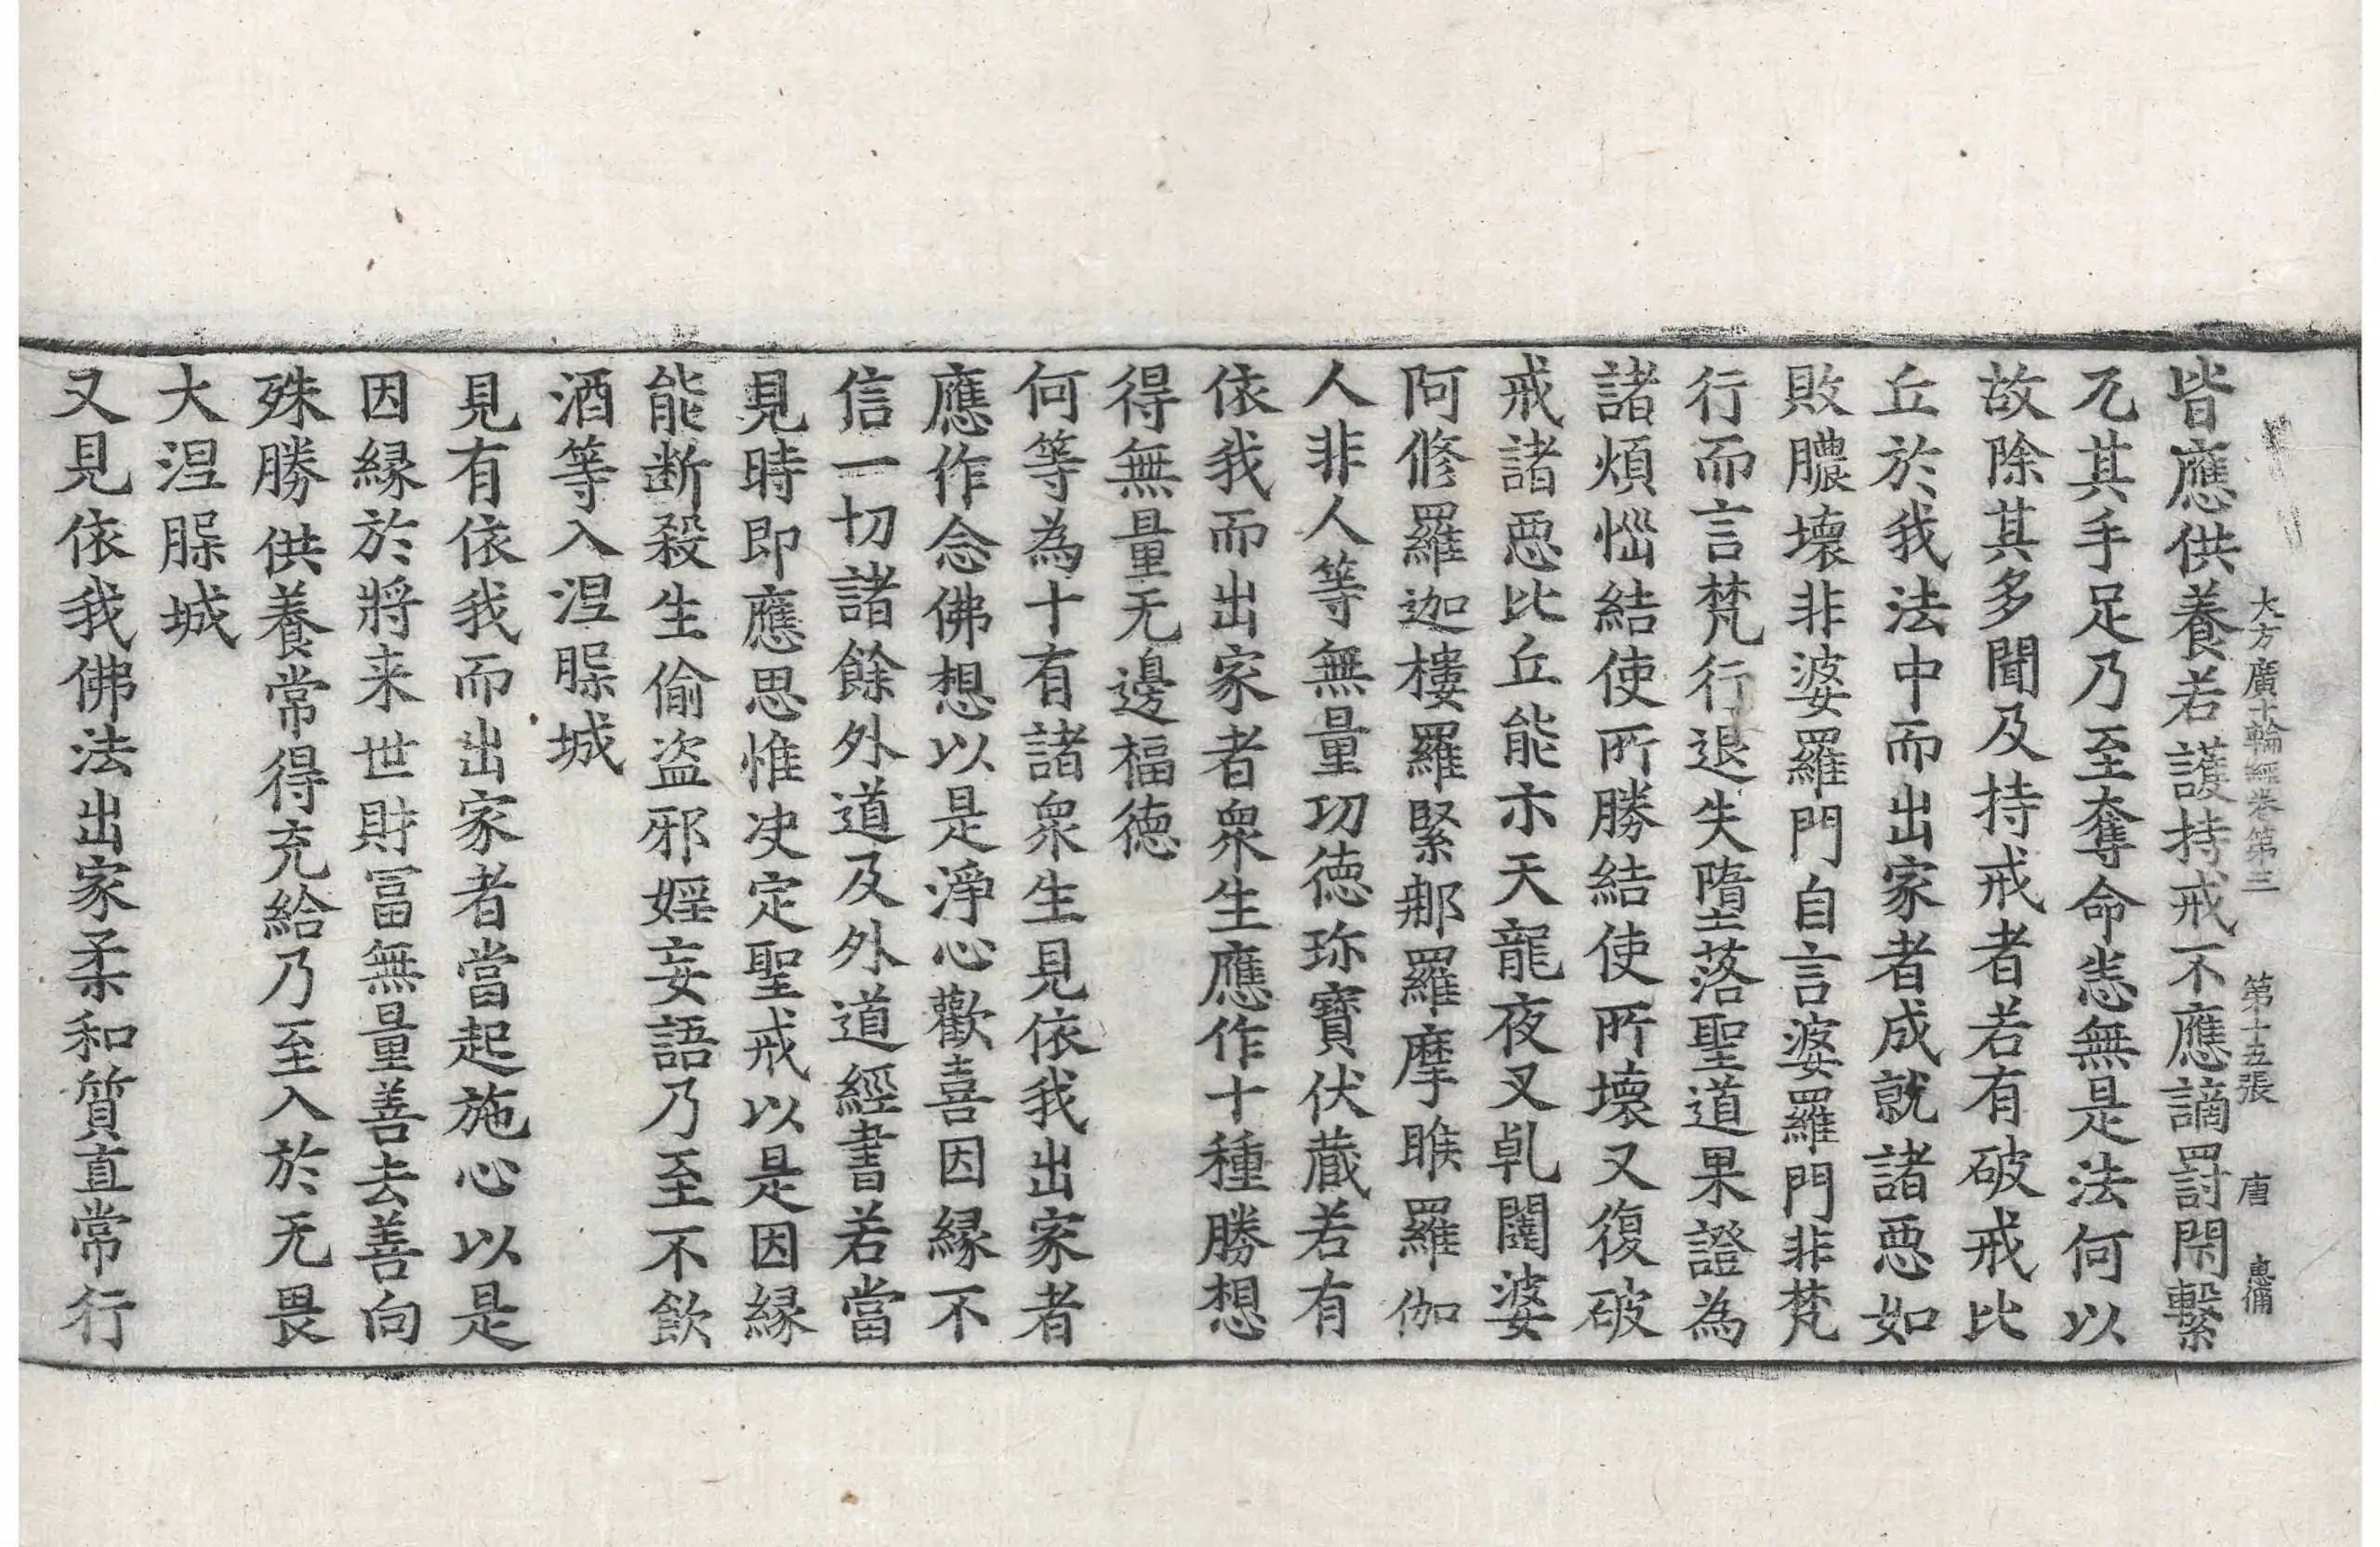 大方廣十輪經卷第三 第十五張 唐 惠備
皆應供養若護持戒不應讁罰閇繫
兀其手足乃至奪命悉無是法何以
故除其多聞及持戒者若有破戒比
丘於我法中而出家者成就諸惡如
敗膿壞非婆羅門自言婆羅門非梵
行而言梵行退失墮落聖道果證為
諸煩惱結使所勝結使所壞又復破
戒諸惡比丘能示天龍夜叉乹闥婆
阿修羅迦樓羅緊那羅摩睺羅伽
人非人等無量功德珎寶伏藏若有
依我而出家者衆生應作十種勝想
得無量无邊福德
何等為十有諸衆生見依我出家者
應作念佛想以是淨心歡喜因縁不
信一切諸餘外道及外道經書若當
見時即應思惟决定聖戒以是因縁
能断殺生偷盗邪婬妄語乃至不飲
酒等入涅槃城
見有依我而出家者當起施心以是
因縁於將来世財冨無量善去善向
殊勝供養常得充給乃至入於无畏
大涅槃城
又見依我佛法出家柔和質直常行